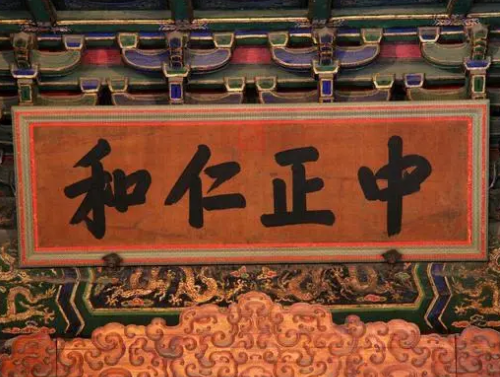 中正仁和